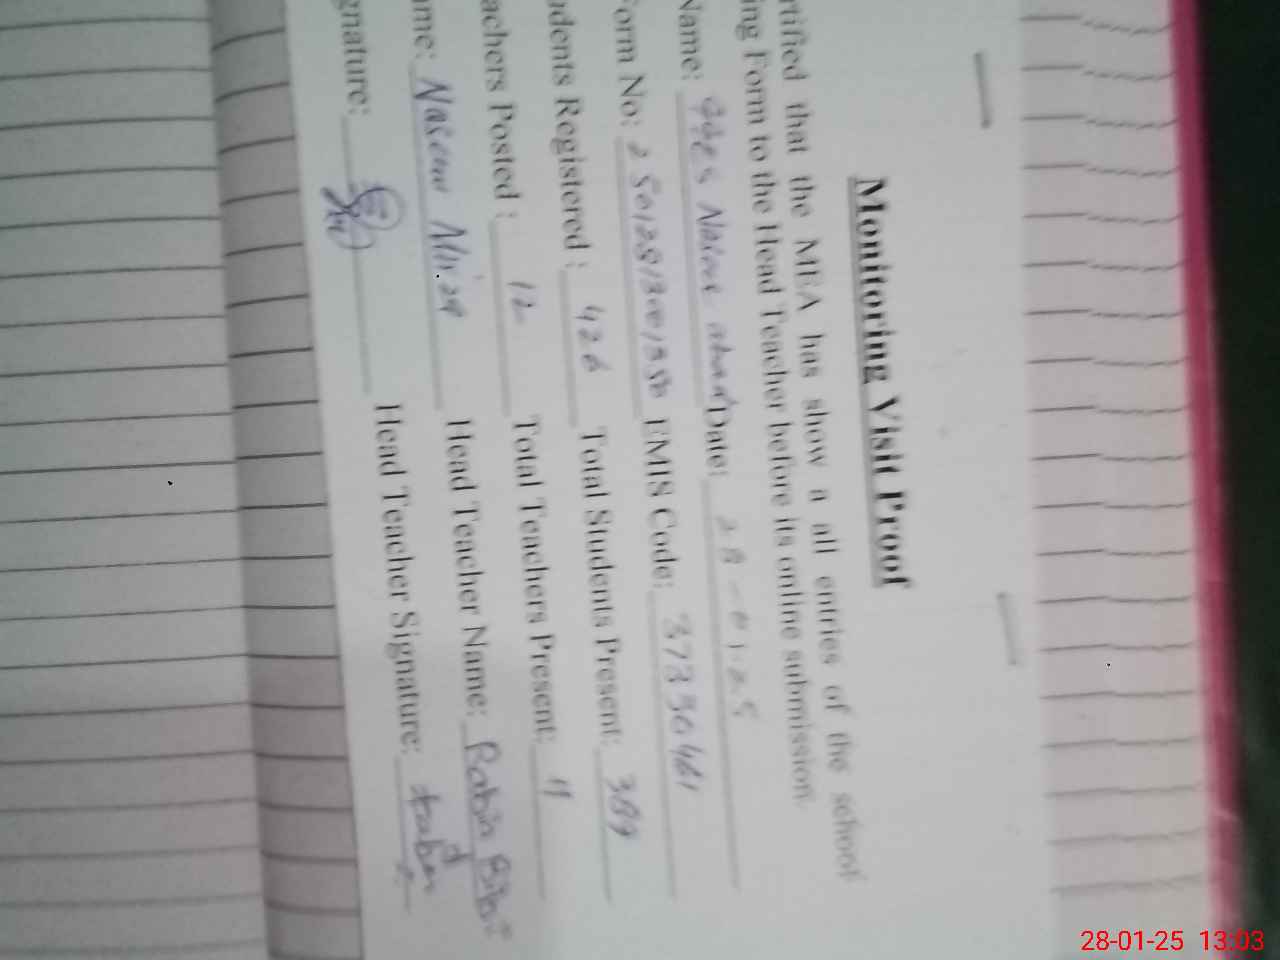 Monitoring Visit Proof
rtified that the MEA has show a all entries of the school
ing Form to the Head Teacher before its online submission.
Name: GGES Date: 28-01-25
Form No: EMIS Code: 37330461
udents Registered : 426 Total Students Present: 389
achers Posted : 12 Total Teachers Present: 11
ame: Naseem Head Teacher Name: Rabia Bibi
gnature: Head Teacher Signature:
28-01-25 13:03